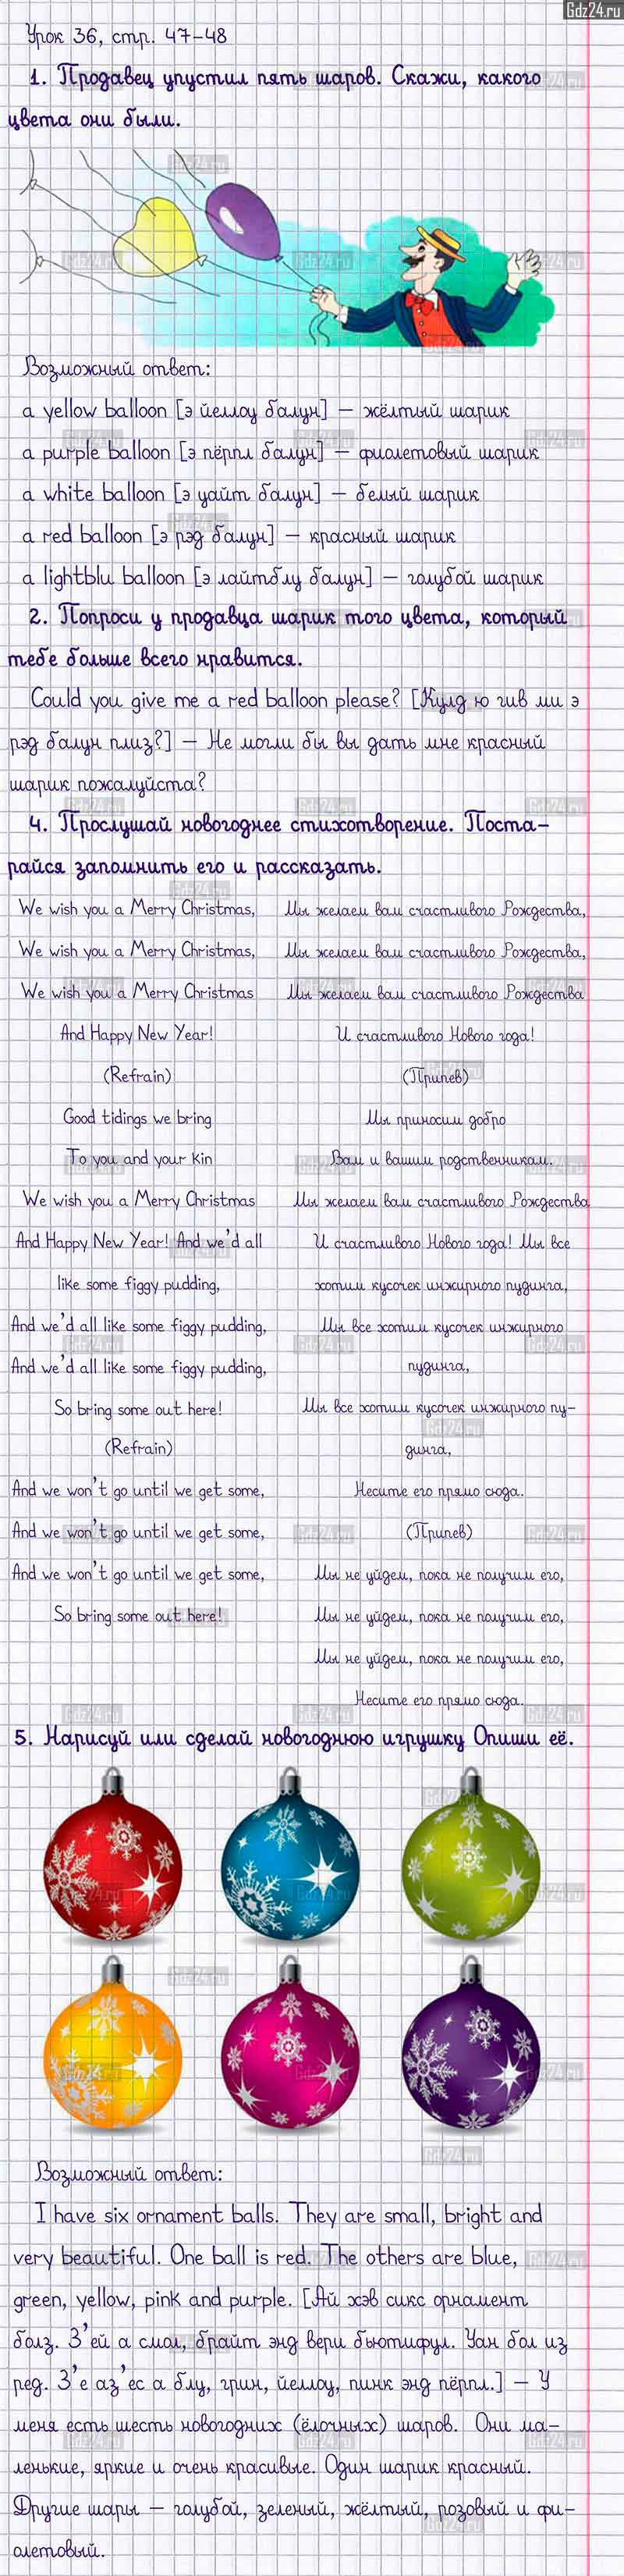 Gdz24.ru
Урок 36, стр. 47-48
1. Продавец упустил пять шаров. Скажи, какого
цвета они были.
Возможный ответ:
a yellow balloon [э йеллоу балун] – жёлтый шарик
a purple balloon [э пёрпл балун] – фиолетовый шарик
a white balloon [э уайт балун] – белый шарик
a red balloon [э рэд балун] – красный шарик
a lightblu balloon [э лайтблу балун] – голубой шарик
2. Попроси у продавца шарик того цвета, который
тебе больше всего нравится.
Could you give me a red balloon please? [Кулд ю гив ми э
рэд балун плиз?] – Не могли бы вы дать мне красный
шарик пожалуйста?
4. Прослушай новогоднее стихотворение. Поста-
райся запомнить его и рассказать.
We wish you a Merry Christmas,
We wish you a Merry Christmas,
We wish you a Merry Christmas
And Happy New Year!
(Refrain)
Good tidings we bring
To you and your kin
We wish you a Merry Christmas
And Happy New Year! And we'd all
like some figgy pudding,
And we'd all like some figgy pudding,
And we'd all like some figgy pudding,
So bring some out here!
(Refrain)
And we won't go until we get some,
And we won't go until we get some,
And we won't go until we get some,
So bring some out here!
Мы желаем вам счастливого Рождества,
Мы желаем вам счастливого Рождества,
Мы желаем вам счастливого Рождества
И счастливого Нового года!
(Припев)
Мы приносим добро
Вам и вашим родственникам.
Мы желаем вам счастливого Рождества
И счастливого Нового года! Мы все
хотим кусочек инжирного пудинга,
Мы все хотим кусочек инжирного
пудинга,
Мы все хотим кусочек инжирного пу-
динга,
Несите его прямо сюда.
(Припев)
Мы не уйдем, пока не получим его,
Мы не уйдем, пока не получим его,
Мы не уйдем, пока не получим его,
Несите его прямо сюда.
5. Нарисуй или сделай новогоднюю игрушку Опиши её.
Возможный ответ:
I have six ornament balls. They are small, bright and
very beautiful. One ball is red. The others are blue,
green, yellow, pink and purple. [Ай хэв сикс орнамент
болз. З'ей а смол, брайт энд вери бьютифул. Уан бол из
ред. З'е аз'ес а блу, грин, йеллоу, пинк энд пёрпл.] – У
меня есть шесть новогодних (ёлочных) шаров. Они ма-
ленькие, яркие и очень красивые. Один шарик красный.
Другие шары – голубой, зеленый, жёлтый, розовый и фи-
олетовый.